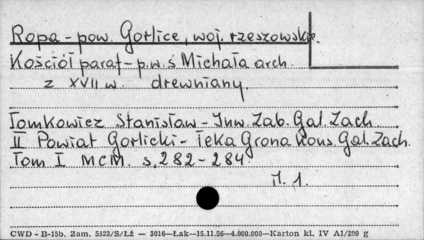 Ropa - pow. Gorlice, woj. rzeszowskie.
Kościół paraf - p.w. ś Michała arch.
z XVII w. drewniany.
Tomkowicz Stanisław - Inw. Zab. Gal. Zach
II Powiat Gorlicki - Teka Grona Kons. Gal. Zach.
Tom I MCM. s. 282 - 284
il. 1.
CWD - B-15b. Zam. 5323/S/ŁŻ — 3016—Łak—15.11.56—4.000.000—Karton kl. IV A1/200 g